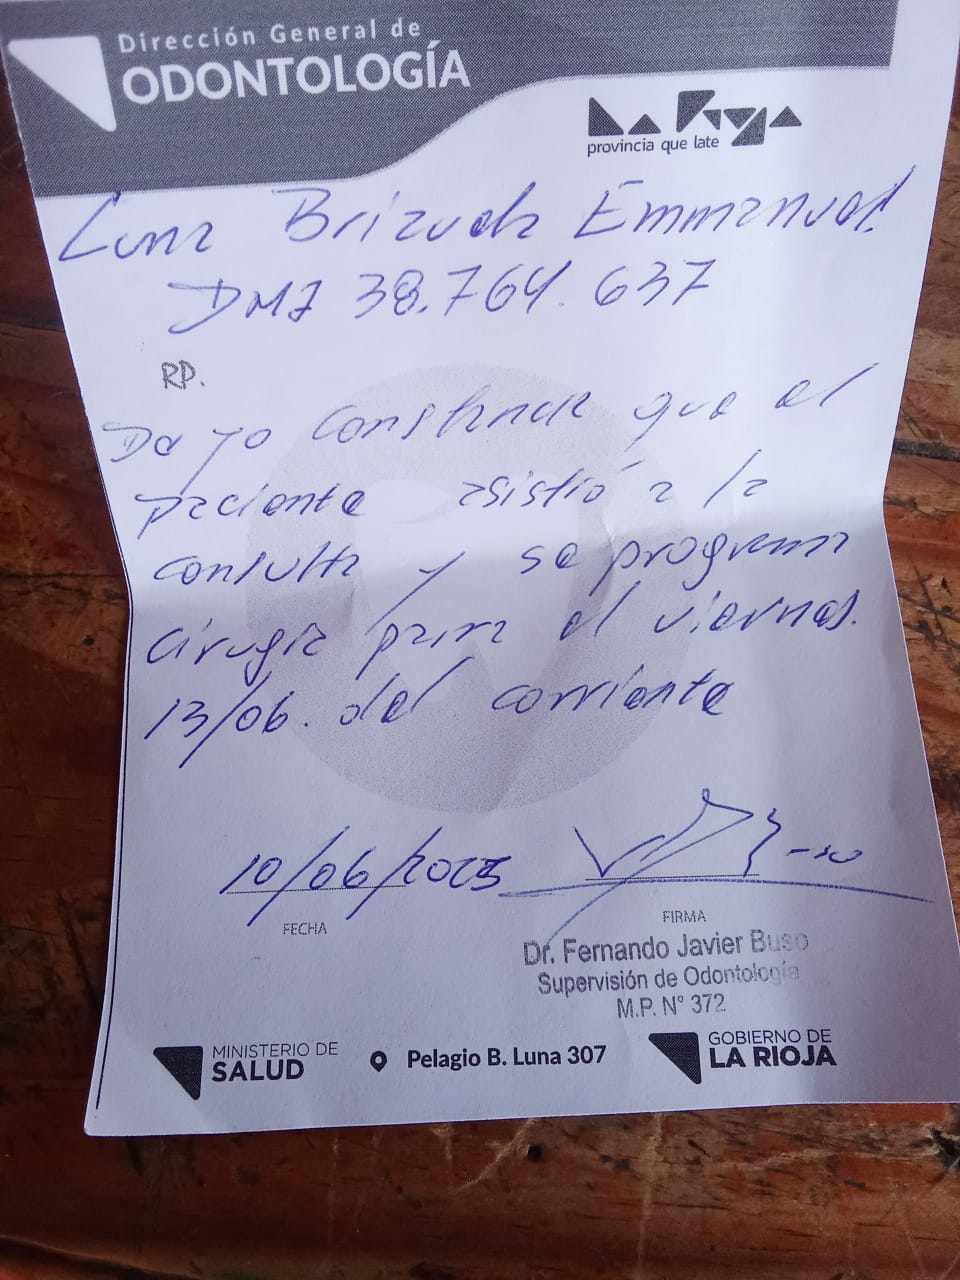 Dirección General de
ODONTOLOGÍA
La Rioja
provincia que late
Luna Brizuela Emmanuel.
DNI 38.764.637
RP.
Dejo constancia que el
paciente asistió a la
consulta y se programa
cirugía para el viernes.
13/06. del corriente
10/06/2025
FECHA
FIRMA
Dr. Fernando Javier Buso
Supervisión de Odontología
M.P. N° 372
MINISTERIO DE
SALUD
Pelagio B. Luna 307
GOBIERNO DE
LA RIOJA